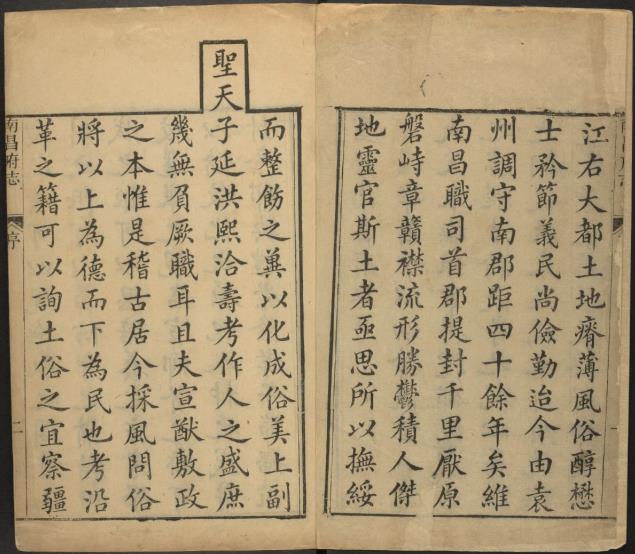 江右大都土地瘠薄風俗醇懋
士矜節義民尚儉勤迨今由袁
州調守南郡距四十餘年矣維
南昌職司首郡提封千里厭原
磐峙章贛襟流形勝鬱積人傑
地靈官斯土者亟思所以撫綏
而整飭之冀以化成俗美上副
聖天子延洪熙洽壽考作人之盛庶
幾無負厥職耳且夫宣猷敷政
之本惟是稽古居今採風問俗
將以上為德而下為民也考沿
革之籍可以詢土俗之宜察疆
南昌府志
序
二